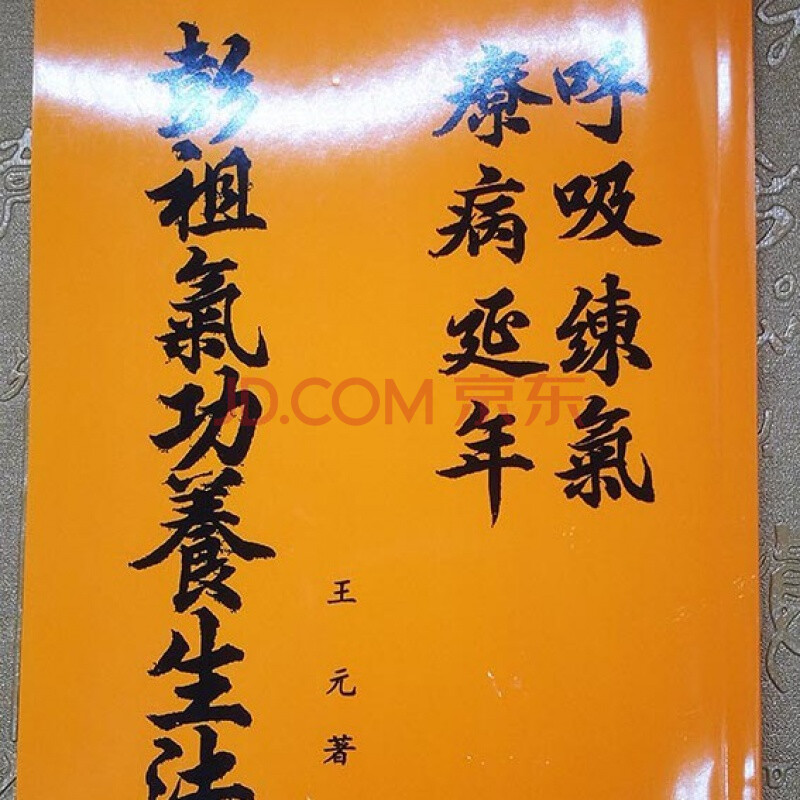 呼吸練氣
療病延年
王元著
彭祖氣功養生法
JD.COM 京东